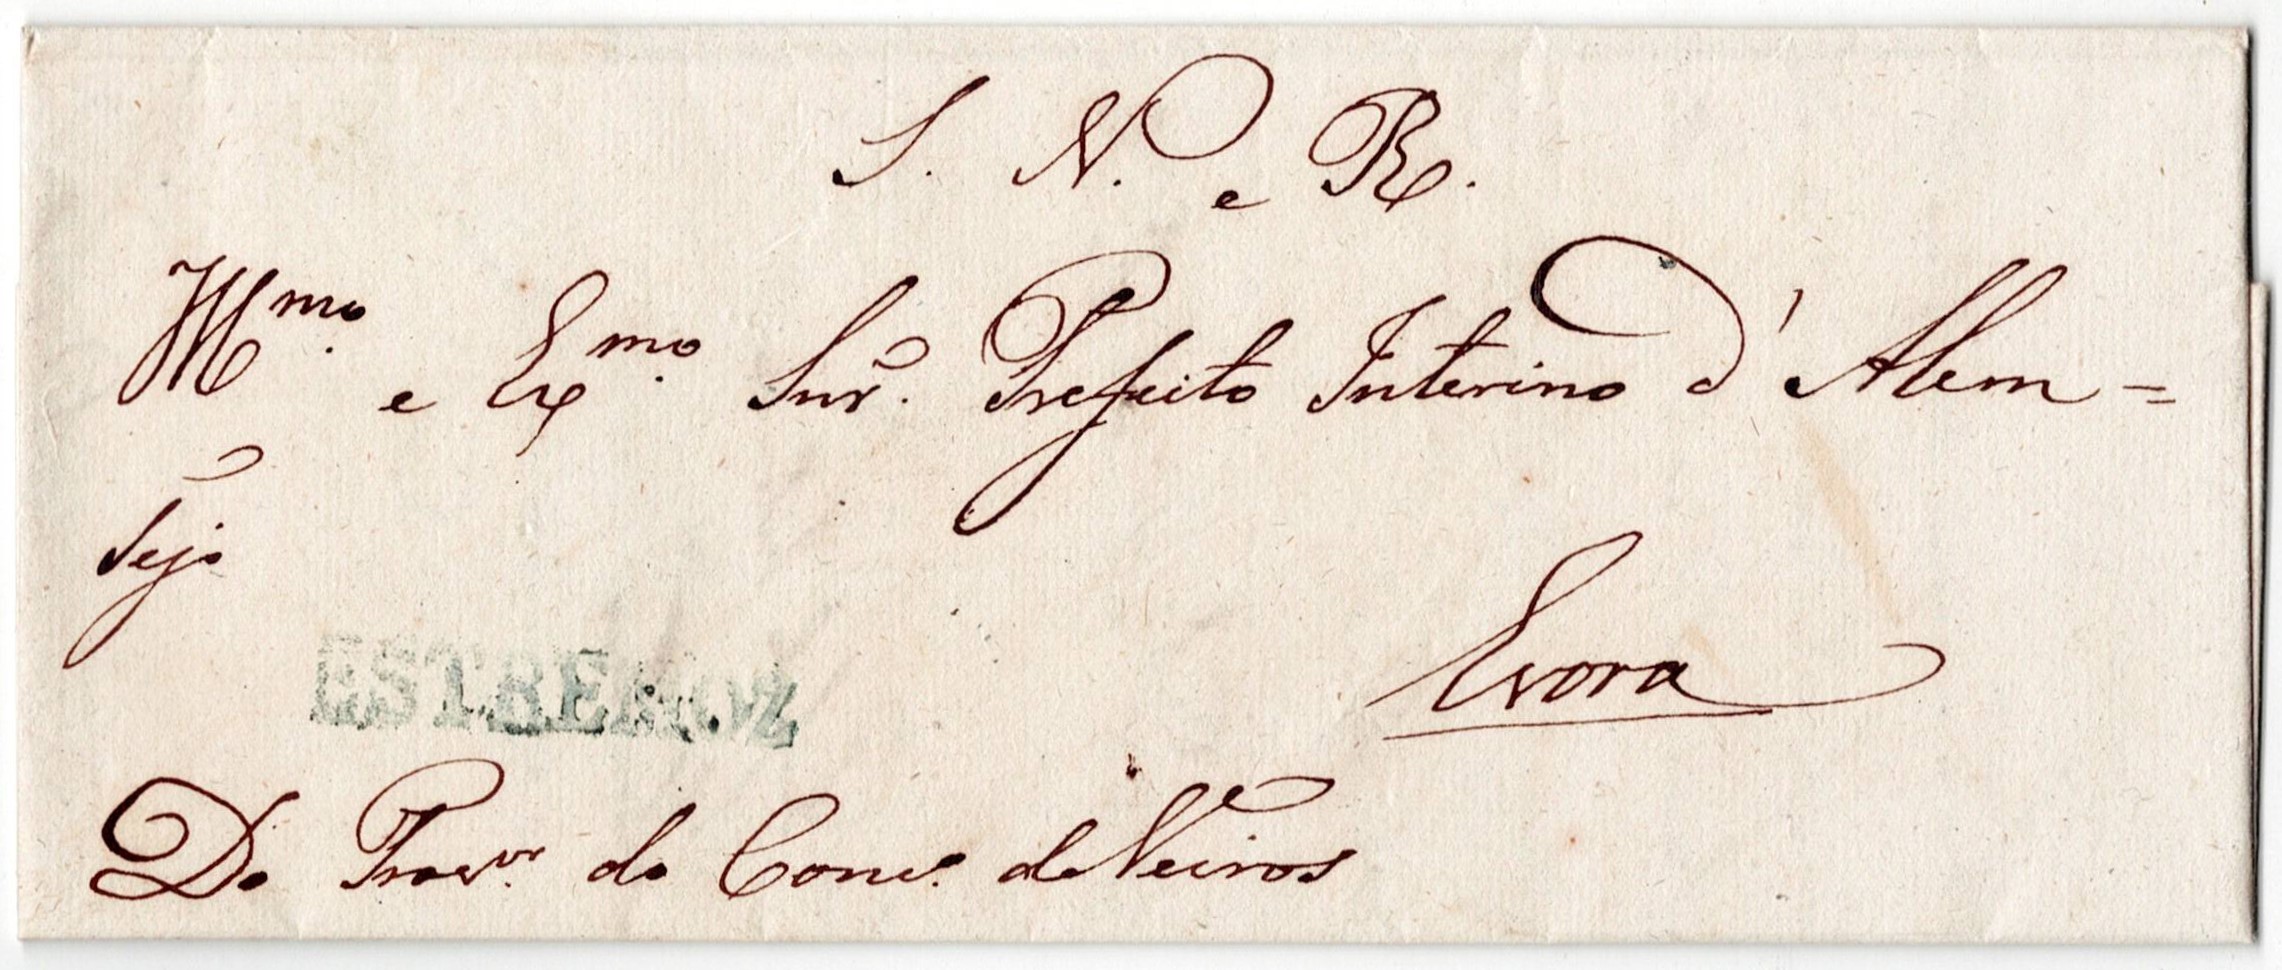 S. N. e R.
Illmo. e Exmo. Snr. Prefeito Interino d'Alem=
tejo
Evora
ESTREMOZ
Do Provor. do Conco. de Veiros